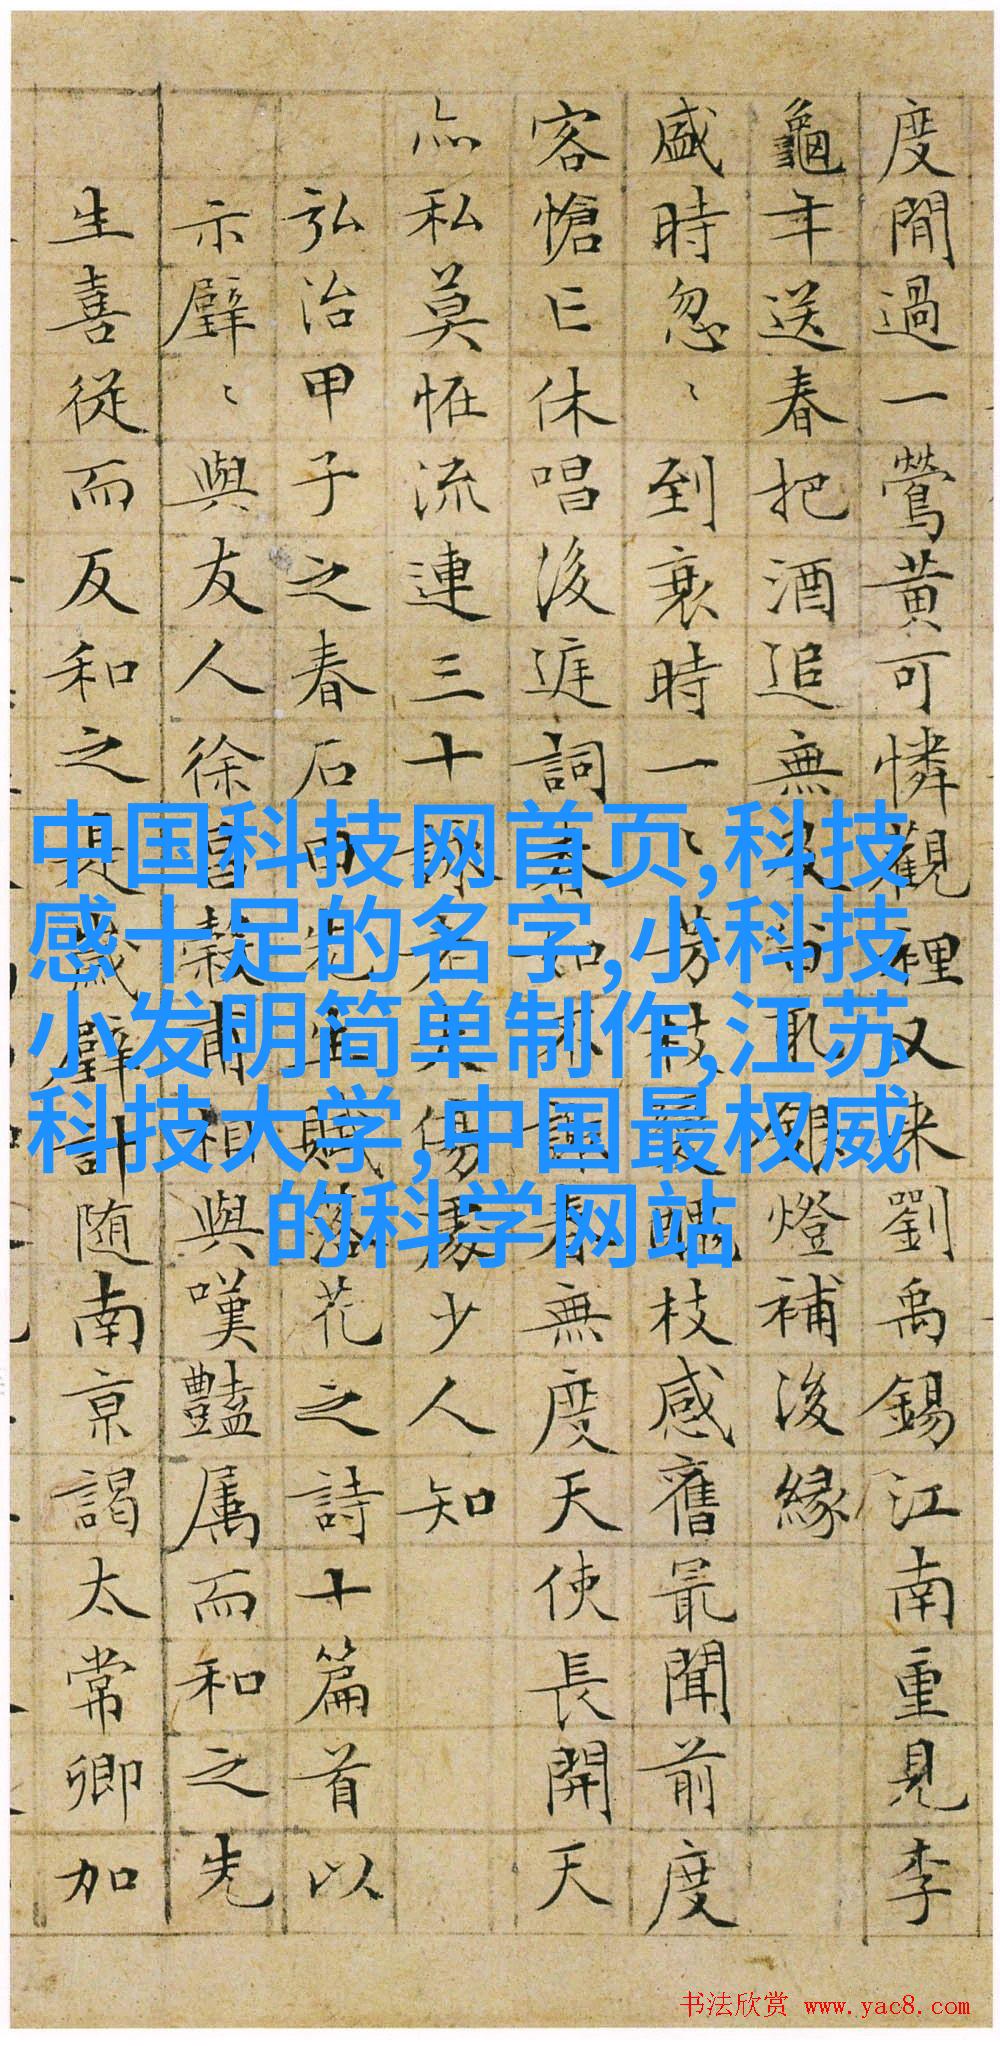 度閒過一鶯黃可憐觀裡又来劉禹錫江南重見李
龜年送春把酒追無燈補後緣
盛時忽〻到衰時一〻芳枝醜枝感舊最聞前度
客愴亡休唱後庭詞春無度天使長開天
亦私莫怪流連三十詠老夫傷處少人知
弘治甲子之春石田先生賦落花之詩十篇首以
示璧〻與友人徐昌榖甫相與嘆豔属而和之先
生喜從而反和之是歲璧計随南京謁太常卿加
中国科技网首页,科技
感十足的名字,小科技
小发明简单制作,江苏
科技大学,中国最权威
的科学网站
书法欣赏 www.yac8.com